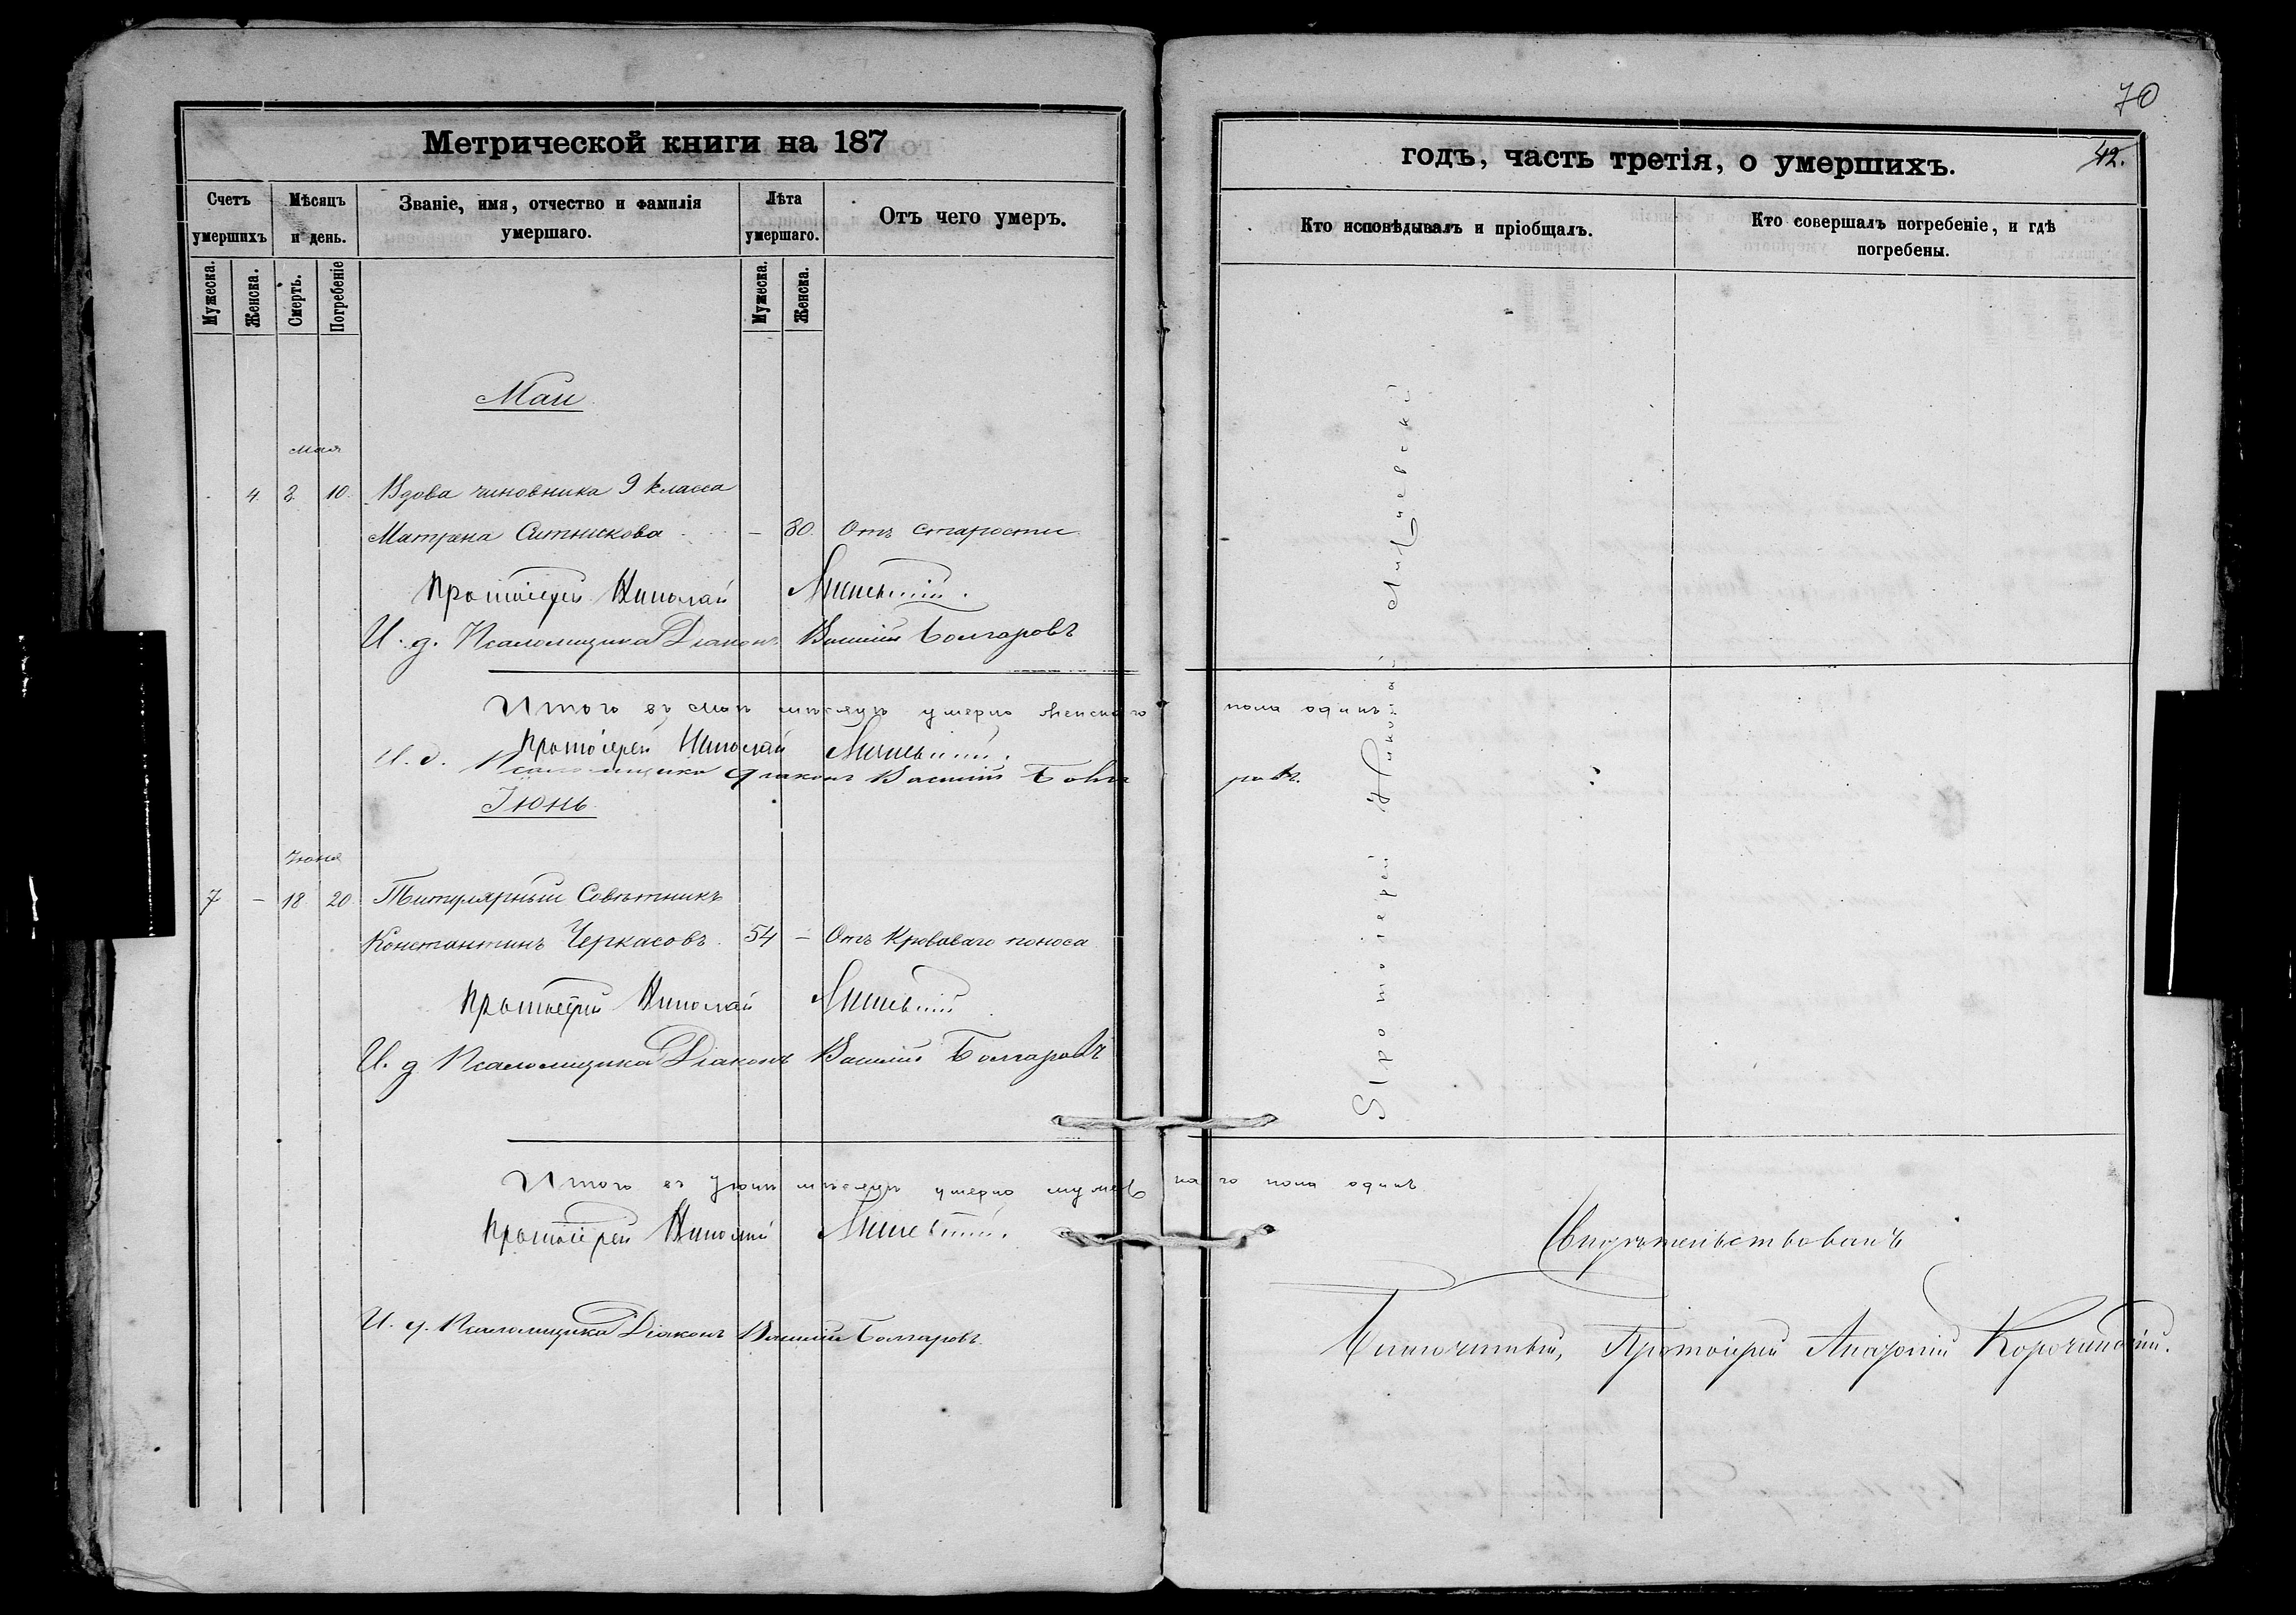 70
Метрической книги на 187
годъ, часть третія, о умершихъ.
42.
Счетъ умершихъ
Мѣсяцъ и день.
Званіе, имя, отчество и фамилія умершаго.
Лѣта умершаго.
Отъ чего умеръ.
Кто исповѣдывалъ и пріобщалъ.
Кто совершалъ погребеніе, и гдѣ погребены.
Мужеска.
Женска.
Смерть.
Погребеніе
Мужеска.
Женска.
Май
мая
4. 10. Вдова чиновника 9 класса
Матрена Ситникова – 80. Отъ старости
Протоіерей Николай
И. д. Псаломщика Діаконъ Василій Болгаровъ
Итого въ маѣ мѣсяцѣ умерло женскаго пола одинъ
Протоіерей Николай
И. д. Псаломщика діаконъ Василій Болгаровъ.
Іюнь
Іюня
7 – 18. 20. Титулярный Совѣтникъ
Константинъ Черкасовъ. 54 – Отъ кроваваго поноса
Протоіерей Николай
И. д. Псаломщика Діаконъ Василій Болгаровъ
Итого въ Іюнѣ мѣсяцѣ умерло мужескаго пола одинъ
Протоіерей Николай
И. д. Псаломщика Діаконъ Василій Болгаровъ
Протоіерей Николай
Свидѣтельствовалъ
Благочинный, Протоіерей Андроній Корочанскій.